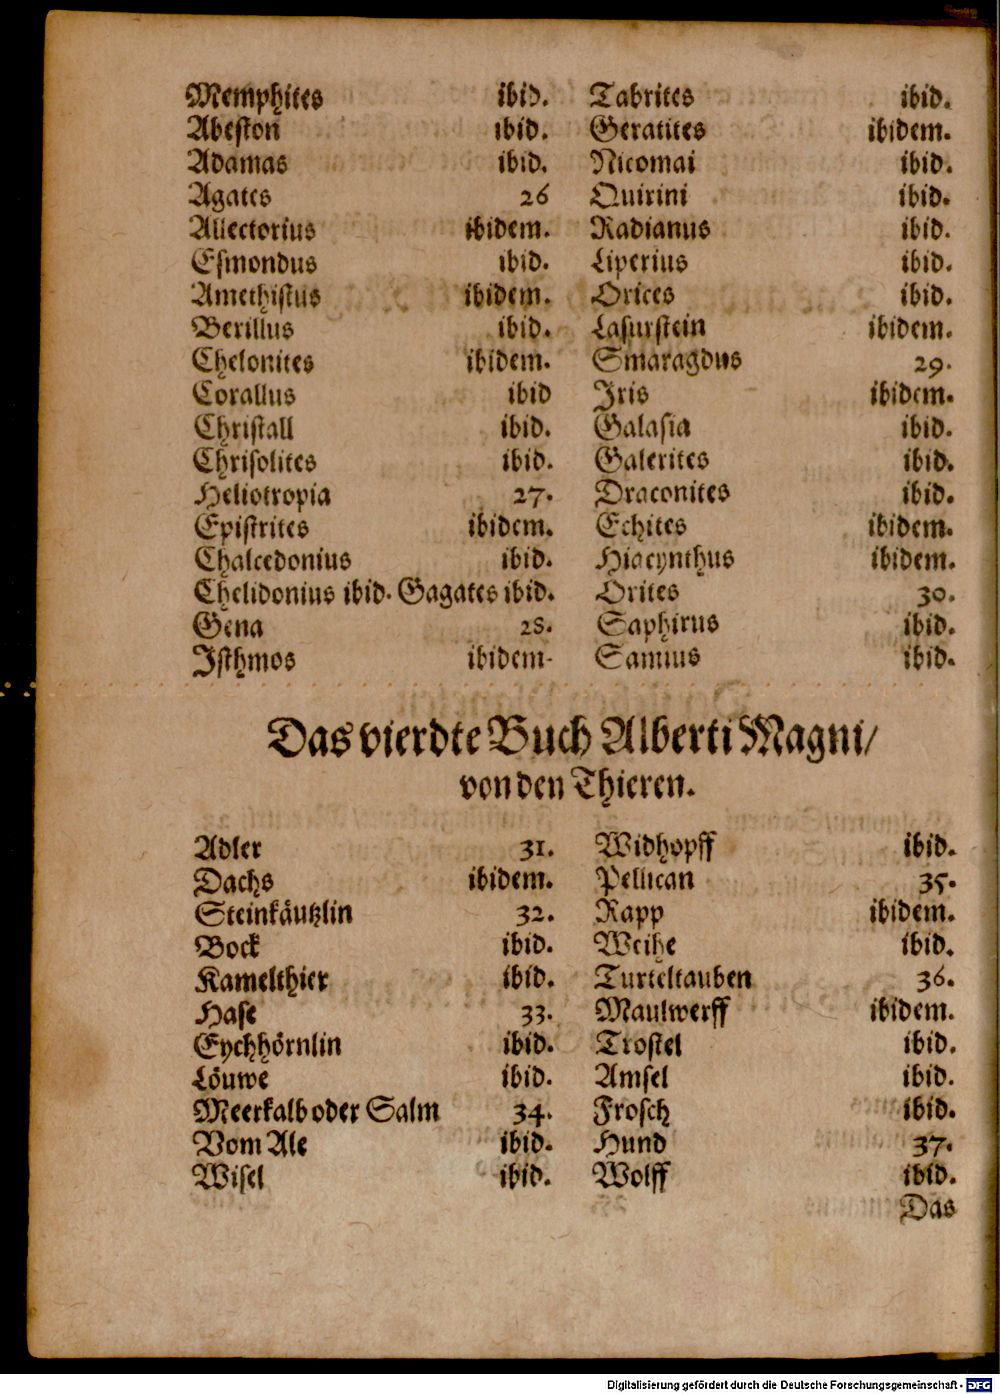 Memphites ibid.
Abeston ibid.
Adamas ibid.
Agates 26
Allectorius ibidem.
Esmondus ibid.
Amethistus ibidem.
Berillus ibid.
Chelonites ibidem.
Corallus ibid
Christall ibid.
Chrisolites ibid.
Heliotropia 27.
Epistrites ibidem.
Chalcedonius ibid.
Chelidonius ibid. Gagates ibid.
Gena 28.
Isthmos ibidem.
Tabrites ibid.
Geratites ibidem.
Nicomai ibid.
Quirini ibid.
Radianus ibid.
Liperius ibid.
Orices ibid.
Lasurstein ibidem.
Smaragdus 29.
Iris ibidem.
Galasia ibid.
Galerites ibid.
Draconites ibid.
Echites ibidem.
Hiacynthus ibidem.
Orites 30.
Saphirus ibid.
Samius ibid.
Das vierdte Buch Alberti Magni/
von den Thieren.
Adler 31.
Dachs ibidem.
Steinkäutzlin 32.
Bock ibid.
Kamelthier ibid.
Hase 33.
Eychhörnlin ibid.
Löuwe ibid.
Meerkalb oder Salm 34.
Vom Ale ibid.
Wisel ibid.
Widhopff ibid.
Pellican 35.
Rapp ibidem.
Weihe ibid.
Turteltauben 36.
Maulwerff ibidem.
Trostel ibid.
Amsel ibid.
Frosch ibid.
Hund 37.
Wolff ibid.
Das
Digitalisierung gefördert durch die Deutsche Forschungsgemeinschaft - DFG